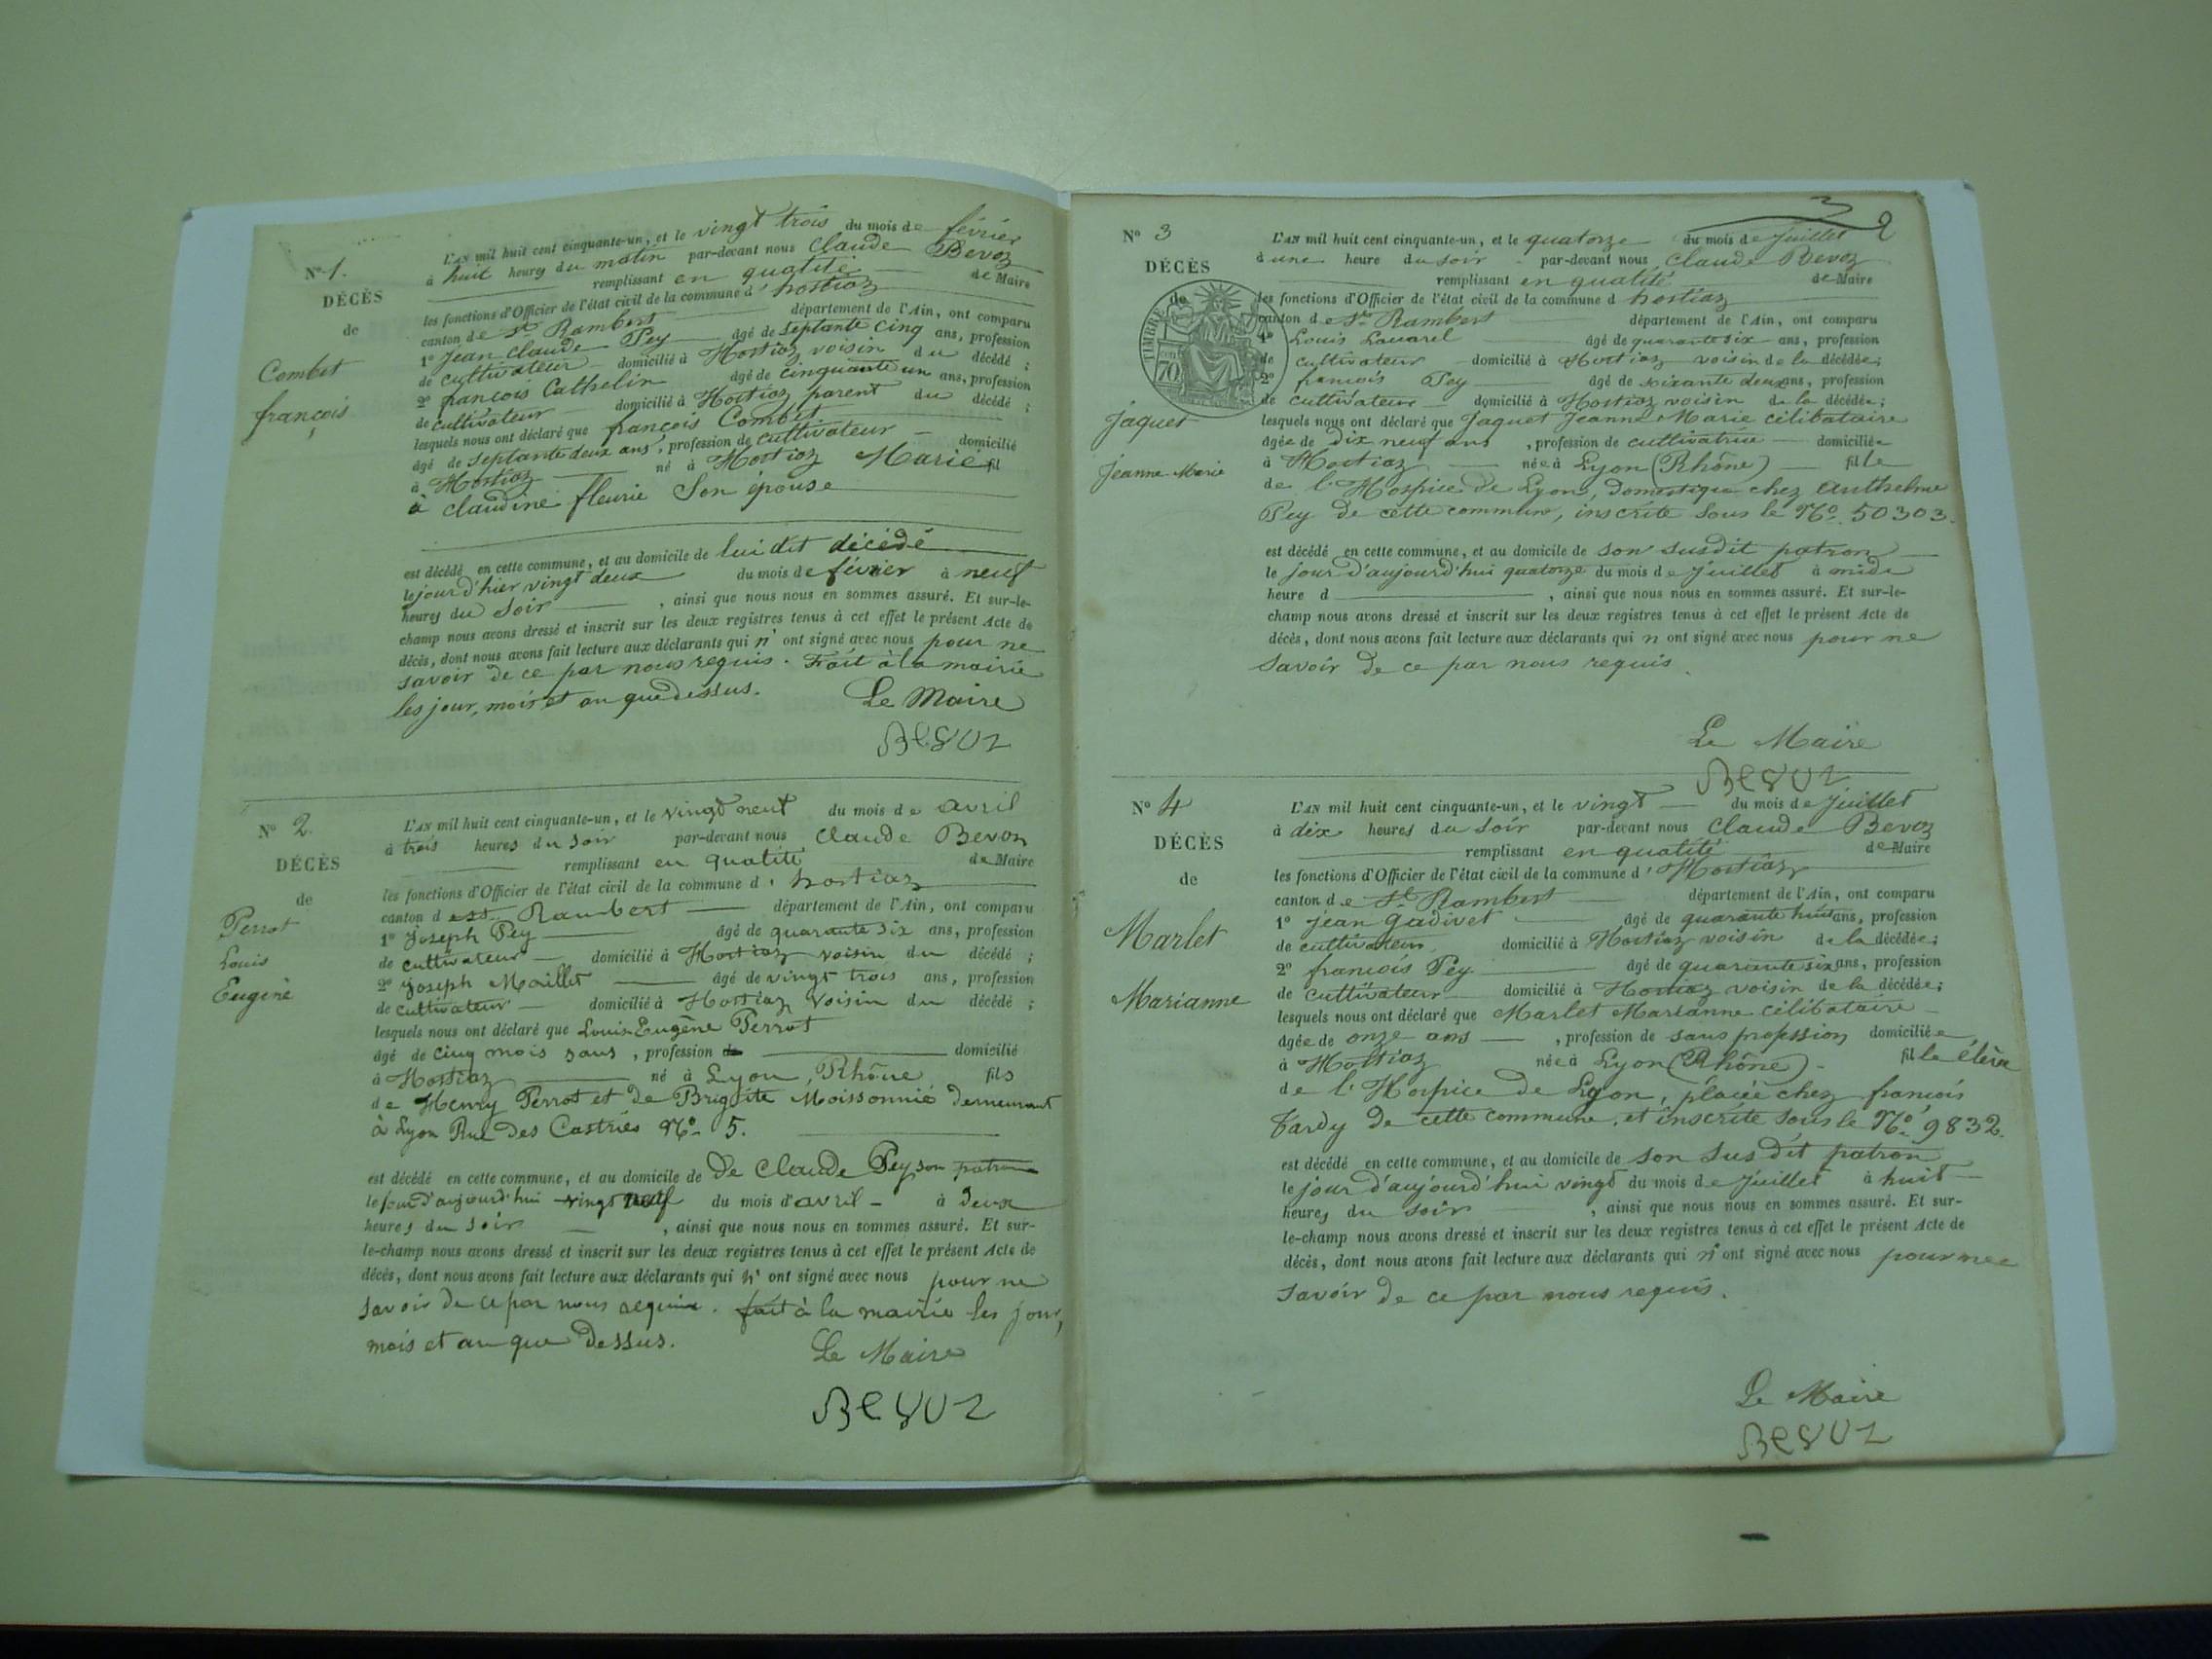 N° 1.
DÉCÈS
de
Combet
françois
L'AN mil huit cent cinquante-un, et le vingt trois du mois de février
à huit heures du matin par-devant nous Claude Bevoz
remplissant en qualité de Maire
les fonctions d'Officier de l'état civil de la commune d'hostiaz
canton de St Rambert département de l'Ain, ont comparu
1° Jean Claude Pey âgé de septante cinq ans, profession
de cultivateur domicilié à Hostiaz voisin du décédé ;
2° françois Cathelin âgé de cinquante un ans, profession
de cultivateur domicilié à Hostiaz parent du décédé ;
lesquels nous ont déclaré que françois Combet
âgé de septante deux ans, profession de cultivateur domicilié
à Hostiaz né à Hostiaz Marié fil
à claudine fleurie Son épouse
est décédé en cette commune, et au domicile de lui dit décédé
le jour d'hier vingt deux du mois de février à neuf
heures du Soir , ainsi que nous nous en sommes assuré. Et sur-le-
champ nous avons dressé et inscrit sur les deux registres tenus à cet effet le présent Acte de
décès, dont nous avons fait lecture aux déclarants qui n'ont signé avec nous pour ne
savoir de ce par nous requis. Fait à la mairie
les jour, mois et an que dessus. Le Maire
Bevoz
N° 2.
DÉCÈS
de
Perrot
Louis
Eugène
L'AN mil huit cent cinquante-un, et le vingt neuf du mois de avril
à trois heures du soir par-devant nous Claude Bevoz
remplissant en qualité de Maire
les fonctions d'Officier de l'état civil de la commune d'hostiaz
canton de St. Rambert département de l'Ain, ont comparu
1° Joseph Pey âgé de quarante six ans, profession
de cultivateur domicilié à Hostiaz voisin du décédé ;
2° Joseph Maillet âgé de vingt trois ans, profession
de cultivateur domicilié à Hostiaz Voisin du décédé ;
lesquels nous ont déclaré que Louis Eugène Perrot
âgé de cinq mois sans , profession de domicilié
à Hostiaz né à Lyon, Rhône fils
de Henry Perrot et de Brigitte Moissonnié demeurant
à Lyon Rue des Castriès N° 5.
est décédé en cette commune, et au domicile de De Claude Pey son patron
le jour d'aujourd'hui vingt neuf du mois d'avril à deux
heures du soir , ainsi que nous nous en sommes assuré. Et sur-
le-champ nous avons dressé et inscrit sur les deux registres tenus à cet effet le présent Acte de
décès, dont nous avons fait lecture aux déclarants qui n'ont signé avec nous pour ne
savoir de ce par nous requis. fait à la mairie les jour,
mois et an que dessus. Le Maire
Bevoz
3 2
N° 3
DÉCÈS
de
TIMBRE
70
Jaquet
Jeanne Marie
L'AN mil huit cent cinquante-un, et le quatorze du mois de Juillet
à une heure du soir par-devant nous Claude Bevoz
remplissant en qualité de Maire
les fonctions d'Officier de l'état civil de la commune d hostiaz
canton de St Rambert département de l'Ain, ont comparu
1° Louis Louarel âgé de quarante six ans, profession
de cultivateur domicilié à Hostiaz voisin de la décédée;
2° françois Pey âgé de soixante deux ans, profession
de cultivateur domicilié à Hostiaz voisin de la décédée;
lesquels nous ont déclaré que Jaquet Jeanne Marie célibataire
âgée de dix neuf ans , profession de cultivatrice domiciliée
à Hostiaz née à Lyon (Rhône) fille
de l'Hospice de Lyon, domestique chez Anthelme
Pey de cette commune, inscrite sous le N° 50303.
est décédé en cette commune, et au domicile de son susdit patron
le jour d'aujourd'hui quatorze du mois de Juillet à midi
heure d , ainsi que nous nous en sommes assuré. Et sur-le-
champ nous avons dressé et inscrit sur les deux registres tenus à cet effet le présent Acte de
décès, dont nous avons fait lecture aux déclarants qui n ont signé avec nous pour ne
savoir de ce par nous requis.
Le Maire
Bevoz
N° 4
DÉCÈS
de
Marlet
Marianne
L'AN mil huit cent cinquante-un, et le vingt du mois de Juillet
à dix heures du soir par-devant nous Claude Bevoz
remplissant en qualité de Maire
les fonctions d'Officier de l'état civil de la commune d'Hostiaz
canton de St Rambert département de l'Ain, ont comparu
1° Jean Gadivet âgé de quarante huit ans, profession
de cultivateur domicilié à Hostiaz voisin de la décédée;
2° françois Pey âgé de quarante six ans, profession
de cultivateur domicilié à Hostiaz voisin de la décédée;
lesquels nous ont déclaré que Marlet Marianne célibataire
âgée de onze ans , profession de sans profession domiciliée
à Hostiaz née à Lyon (Rhône) fille élève
de l'Hospice de Lyon, placée chez françois
Tardy de cette commune, et inscrite sous le N° 9832.
est décédé en cette commune, et au domicile de son susdit patron
le jour d'aujourd'hui vingt du mois de Juillet à huit
heures du soir , ainsi que nous nous en sommes assuré. Et sur-
le-champ nous avons dressé et inscrit sur les deux registres tenus à cet effet le présent Acte de
décès, dont nous avons fait lecture aux déclarants qui n'ont signé avec nous pour ne
savoir de ce par nous requis.
Le Maire
Bevoz